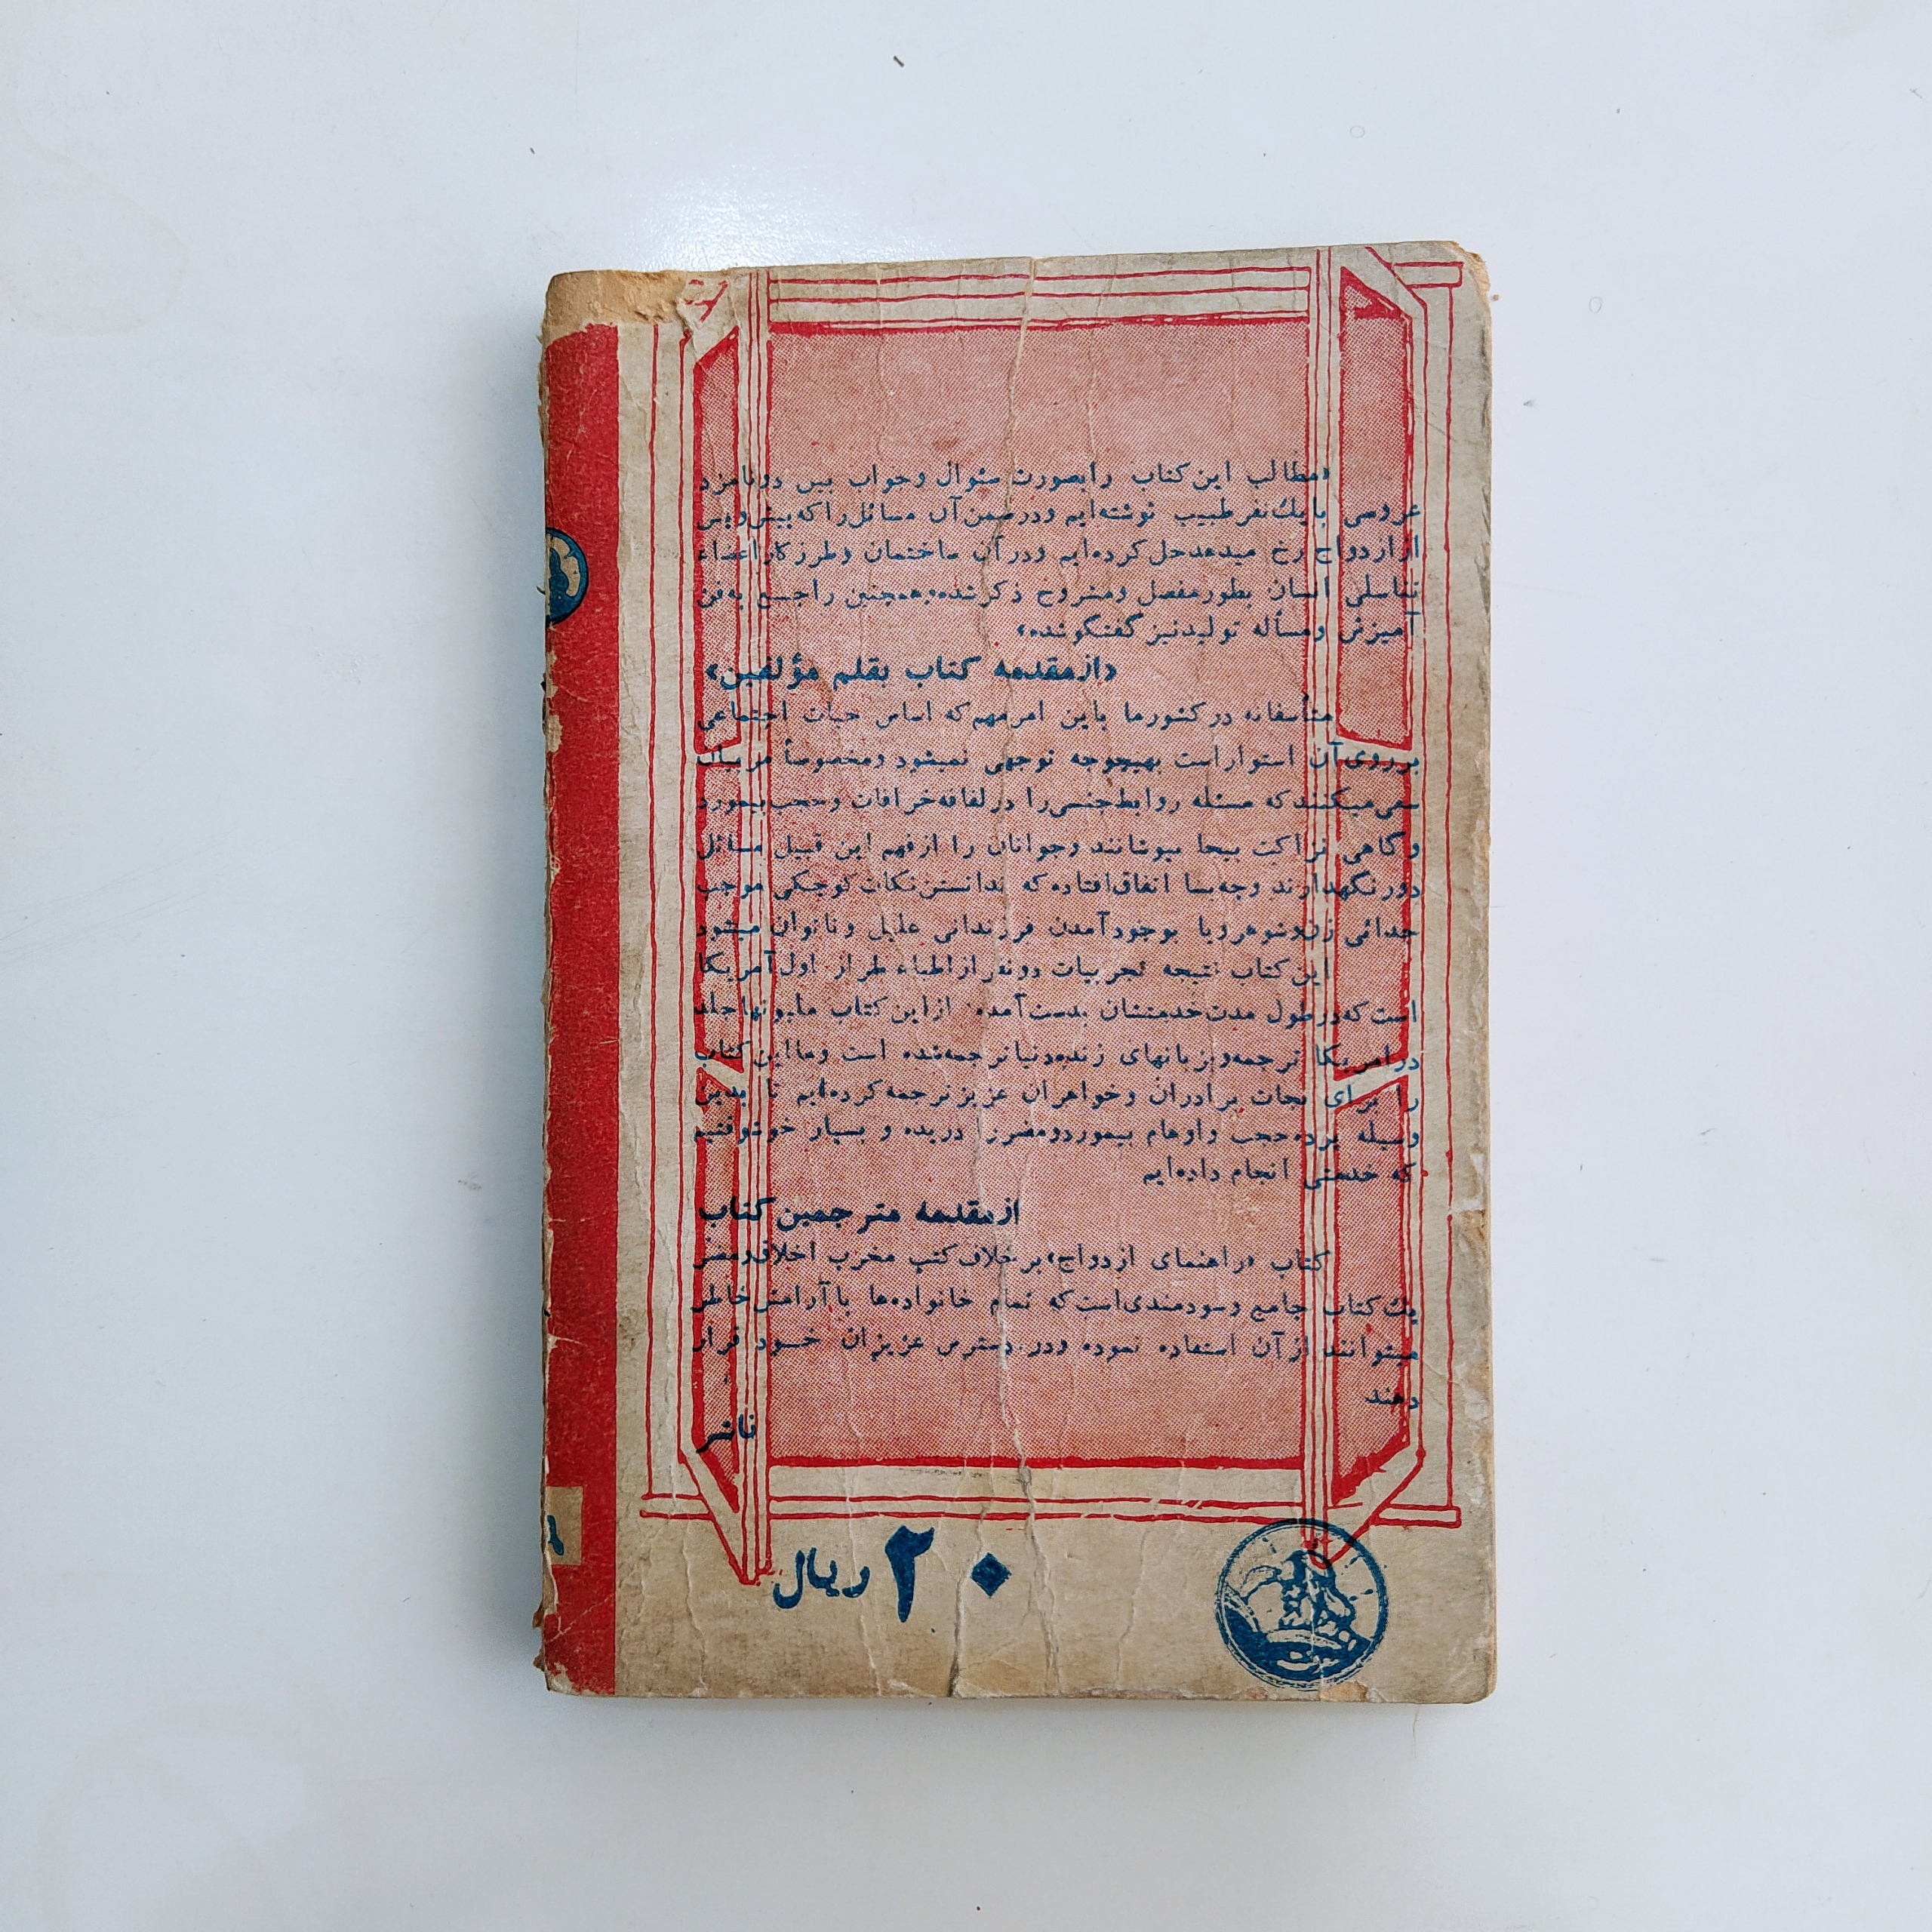 «مطالب این کتاب را بصورت سئوال و جواب بین دو نامزد
عروسی با یك نفر طبیب نوشته‌ایم و در ضمن آن مسائل را که پیش و پس
از ازدواج رخ میدهد حل کرده‌ایم و در آن ساختمان و طرز کار اعضاء
تناسلی انسان بطور مفصل و مشروح ذکر شده و همچنین راجع به فن
آمیزش و مسأله تولید نیز گفتگو شده»
«از مقدمه کتاب بقلم مؤلفین»
متأسفانه در کشور ما باین امر مهم که اساس حیات اجتماعی
بر روی آن استوار است بهیچوجه توجهی نمیشود و مخصوصاً
سعی میکنند که مسئله روابط جنسی را در لفافه خرافات و حجب بیمورد
و گاهی نزاکت بیجا میپوشانند و جوانان را از فهم این قبیل مسائل
دور نگهدارند و چه بسا اتفاق افتاده که ندانستن نکات کوچکی موجب
جدائی زن و شوهر و یا بوجود آمدن فرزندانی علیل و ناتوان میشود
این کتاب نتیجه تجربیات دو نفر از اطباء طراز اول آمریکا
است که در طول مدت خدمتشان بدست آمده از این کتاب ملیونها جلد
در امریکا ترجمه و بزبانهای زنده دنیا ترجمه شده است و ما این کتاب
را برای نجات برادران و خواهران عزیز ترجمه کرده‌ایم تا بدین
وسیله پرده حجب و اوهام بیمورد و مضر را دریده و بسیار خوشوقتیم
که خدمتی انجام داده‌ایم
از مقدمه مترجمین کتاب
کتاب «راهنمای ازدواج» بر خلاف کتب مخرب اخلاق و مضر
یك کتاب جامع و سودمندی است که تمام خانواده‌ها با آرامش خاطر
میتوانند از آن استفاده نموده و در دسترس عزیزان خود قرار
دهند
ناشر
۲۰ ریال